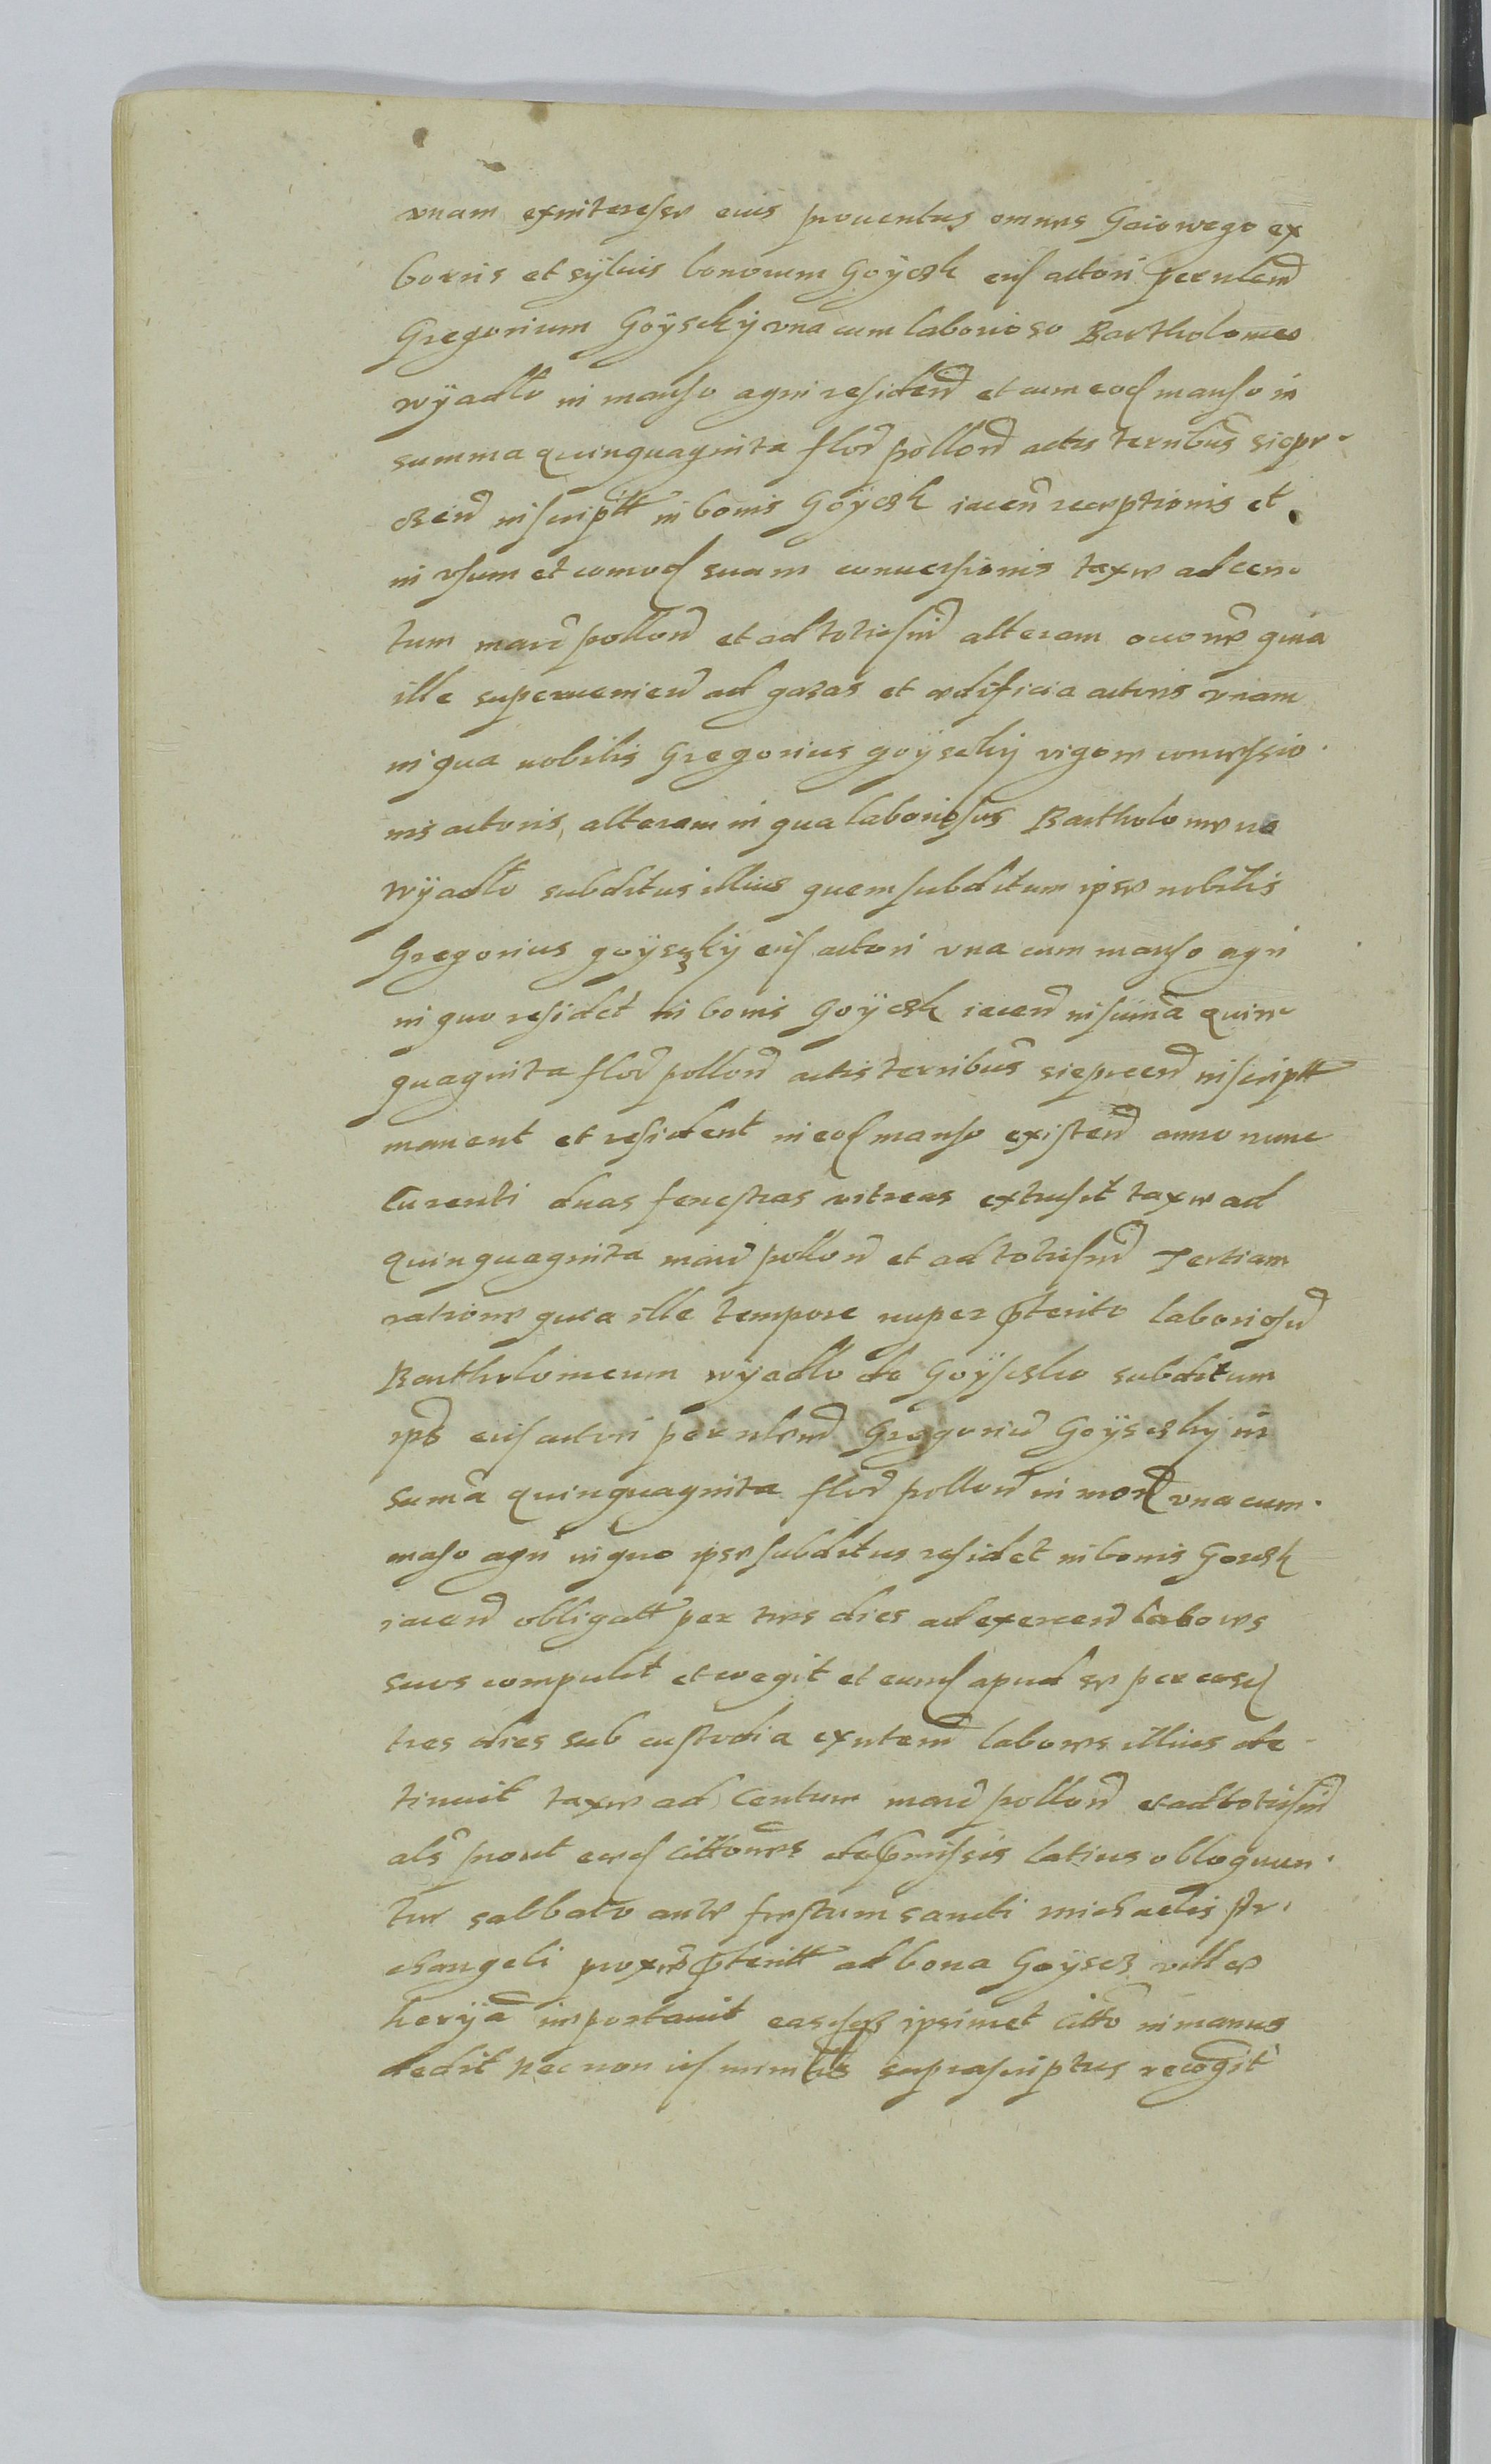 vnam ex interesse eius prouentus omnes Gaiowego ex
borris et syluis bonorum Goÿcsk eid actori per nbilem
Gregorium Goÿsckÿ vna cum laborioso Bartholomeo
wÿadlo in manso agri residen et cum eod manso in
summa quinquaginta flor pollon actis terribus siepr-
cien inscriptt in bonis Goÿcsk iacen receptionis et
in vsum et comod suum conuersionis taxe ad cen-
tum marc pollon et ad totidem alteram occone quia
ille superuenien ad gazas et ædificia actoris vnam
in qua nobilis Gregorius goÿsckÿ vigore concessio-
nis actoris, alteram in qua laboriosus Bartholomeus
wÿadlo subditus illius quem subditum ipse nobilis
Gregorius goÿsckÿ eid actori vna cum manso agri
in quo residet in bonis Goÿcsk iacen in suma quin-
quaginta flor pollon actis terribus sieprcen inscriptt
manent et resident in eod manso existen anno nunc
curenti duas fenestras vitreas extrusit taxe ad
quinquaginta marc pollon et ad totidem Tertiam
ratione quia ille tempore nuper pterito laboriosu
Bartholomeum wÿadlo de Goÿscsko subditum
ips eid actori per nbilem Gregoriu Goÿscskÿ in
suma quinquaginta flor pollon in mod vna cum
maso agri in quo ipse subditus residet in bonis Gozcsk
iacen obligatt per tres dies ad exercen labores
suos compulit et coegit et eumd apud se per eosd
tres dies sub custodia exnten labores illius de-
tinuit taxe ad Centum marc pollon et ad totidem
als prout eæd cittones de pmissis latius obloquun-
tur sabbato ante festum sancti Michaelis Ar-
changeli proxe pteritt ad bona Goÿscz ville
herÿa inportauit easq ipsimet citto in manus
dedit Nec non id minlis suprascriptus recogit